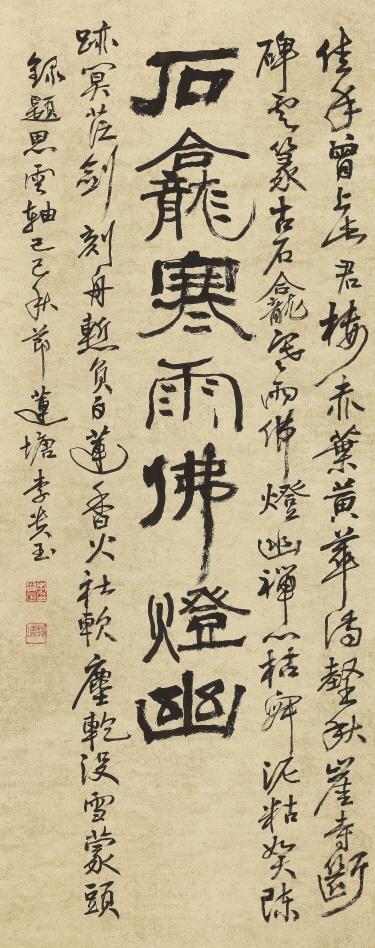 往年曾上君樓赤葉黃華滿壑秋崖寺斷
碑雲篆古石龕寒雨佛燈幽禪心枯泥粘絮陳
石龕寒雨佛燈幽
跡冥茫劍刻舟慙負白蓮香火社軟塵乾沒雪蒙頭
錄題思雲軸己巳秋節蓮塘李玉